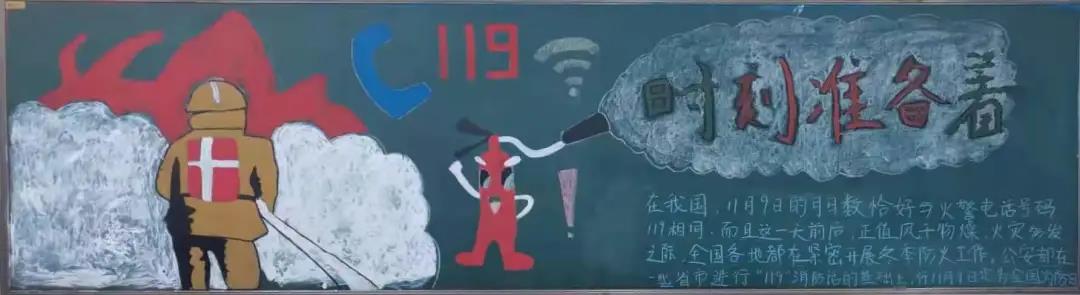 119
时刻准备着
在我国,11月9日的月日数恰好与火警电话号码
119相同,而且这一天前后,正值风干物燥、火灾多发
之际,全国各地都在紧密开展冬季防火工作,公安部在
一些省市进行"119"消防活的基础上,于11月9日定为全国消防日